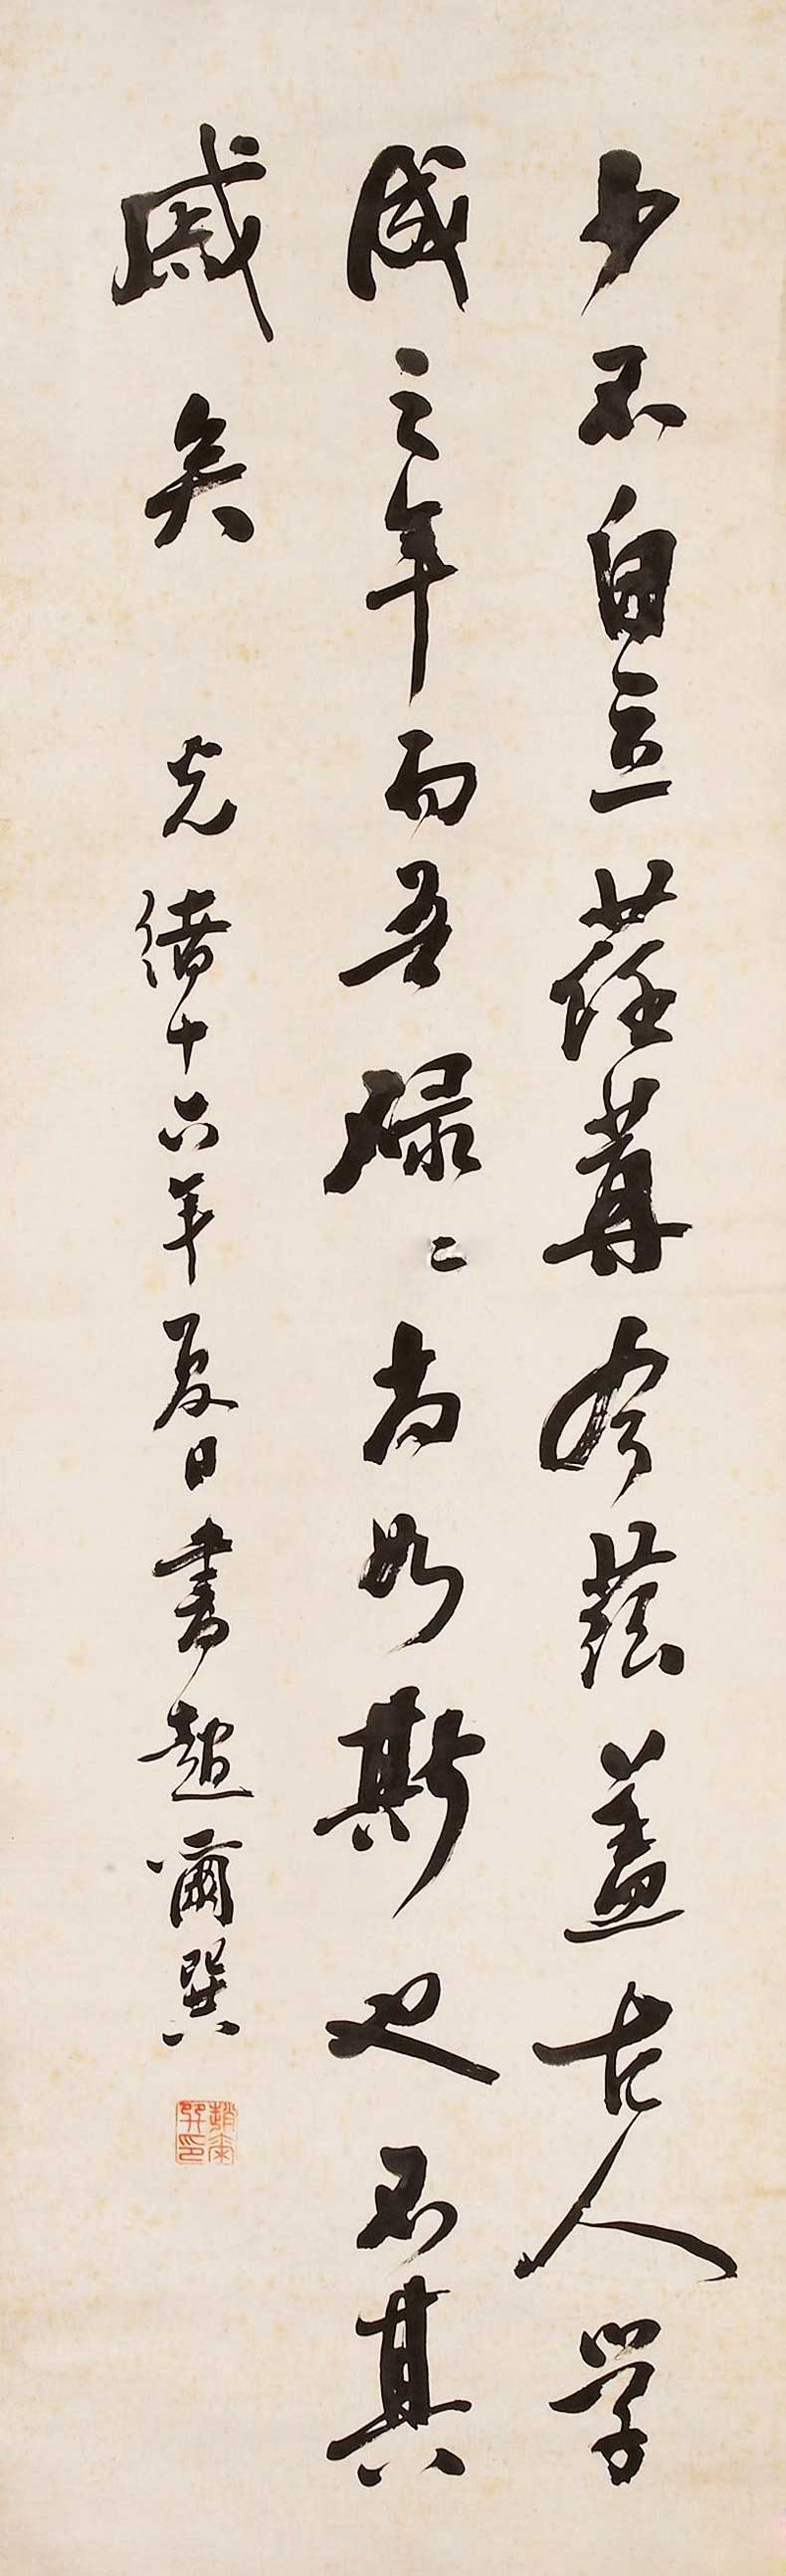 少不自立荏苒今茲蓋古人学
成之年而吾碌二尚如斯也不其
戚矣 光緒十六年夏日書趙爾巽
趙爾巽印